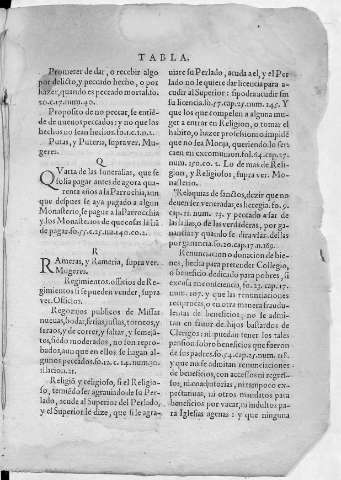 TABLA.
Prometer de dar, o recebir algo
por delicto, y peccado hecho, o por
hazer, quando es peccado mortal. fo.
20.c.17.num.40.
Proposito de no peccar, se entiē-
de de nueuos peccados: y no que los
hechos no sean hechos. fo.1.c.1.n.2.
Putas, y Puteria, supra ver. Mu-
geres.
Q
QVarta de las funeralias, que se
solia pagar antes de agora qua-
renta años a la Parrochia, aun
que despues se aya pagado a algun
Monasterio, se pague a la Parrochia
y los Monasterios de que cosas la hā
de pagar.
R
RAmeras, y Rameria, supra ver.
Mugeres.
Regimientos. officios de Re-
gimientos si se pueden vender, supra
ver. Officios.
Regozijos publicos de Missas
nueuas, bodas, ferias, justas, torneos, y
saraos, y de correr, y saltar, y semeja-
tes, siēdo moderados, no son repro-
bados, aun que en ellos se hagan al-
gunos peccados. fo.12.c.14.num.30.
Religiō y religioso, si el Religio-
so, temiēdo ser agrauiado de su Per-
lado, acude al Superior del Perlado,
y el Superior le dize, que si le agra-
uiare su Perlado, acuda a el, y el Per
lado no le quiere dar licencia para a-
cudir al Superior: si podra acudir sin
su licencia. fo.57.cap.25.num.145. Y
que los que rompelen a alguna mu-
ger a entrar en Religion, o tomar el
habito, o hazer profession: o impidē
que no sea Monja, queriendo lo ser:
caen en excomunion. fol.64.cap.27.
num.150.co.2. Lo de mas de Reli-
gion, y Religiosos, supra ver. Mo-
nasterio.
Reliquias de sanctos, dezir que no
deuen ser veneradas, es heregia. fo.9.
cap.11.num.23. y peccado a far de
las falsas, o de las verdaderas, por ga-
nancia: y quando se dira vsar dellas
por ganancia.
Renunciacion o donacion de bie-
nes, hecha para pretender Collegio,
o beneficio dedicado para pobres, si
excusa in conferencia, fo.23. cap.17.
num.107. y que las renunciaciones
reciprocas, o en otra manera fraudu-
lentas de beneficios, no se admi-
tan en fauor de hijos bastardos de
Clerigos: ni puedan tener los tales
pension sobre beneficios que fueron
de los padres. fo.54.cap.25.num.118.
y que no se admitan renunciaciones
de beneficios, con accesso ni regres-
so, ni coadjutorias, ni tampoco ex-
pectatiuas, ni otros mandatos para
beneficios por vacar, ni indultos pa-
ra Iglesias agenas: y que ninguna